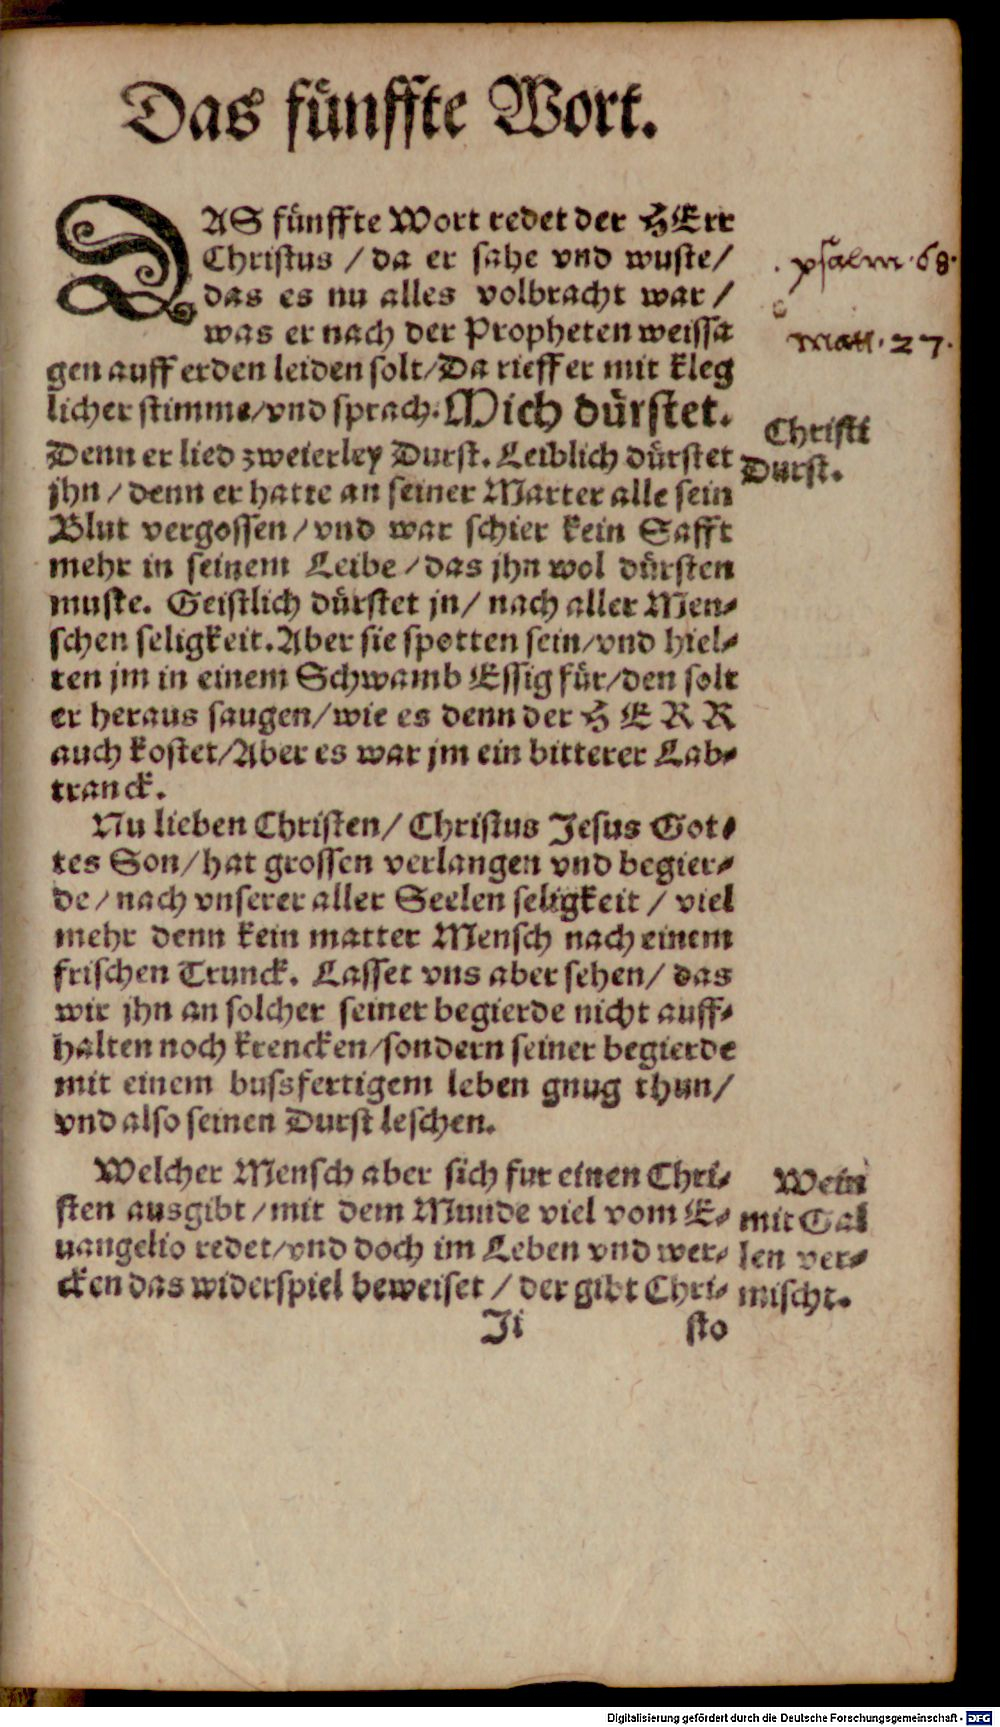 Das fünffte Wort.
DAS fünffte Wort redet der HErr
Christus / da er sahe vnd wuste/
das es nu alles volbracht war /
was er nach der Propheten weissa
gen auff erden leiden solt/Da rieff er mit kleg
licher stimme/vnd sprach. Mich dürstet.
Denn er lied zweierley Durst. Leiblich dürstet
jhn / denn er hatte an seiner Marter alle sein
Blut vergossen / vnd war schier kein Safft
mehr in seinem Leibe / das jhn wol dürsten
muste. Geistlich dürstet jn / nach aller Men-
schen seligkeit. Aber sie spotten sein/vnd hiel-
ten jm in einem Schwamb Essig für/den solt
er heraus saugen/wie es denn der HERR
auch kostet/Aber es war jm ein bitterer Lab-
tranck.
Nu lieben Christen/ Christus Jesus Got-
tes Son/hat grossen verlangen vnd begier-
de / nach vnserer aller Seelen seligkeit / viel
mehr denn kein matter Mensch nach einem
frischen Trunck. Lasset vns aber sehen/ das
wir jhn an solcher seiner begierde nicht auff-
halten noch krencken/sondern seiner begierde
mit einem bussfertigem leben gnug thun/
vnd also seinen Durst leschen.
Welcher Mensch aber sich fur einen Chri-
sten ausgibt / mit dem Munde viel vom E-
uangelio redet/vnd doch im Leben vnd wer-
cken das widerspiel beweiset / der gibt Chri-
Ji sto
psalm 68.
Matt. 27.
Christi
Durst.
Wein
mit Gal
len ver-
mischt.
Digitalisierung gefördert durch die Deutsche Forschungsgemeinschaft - DFG